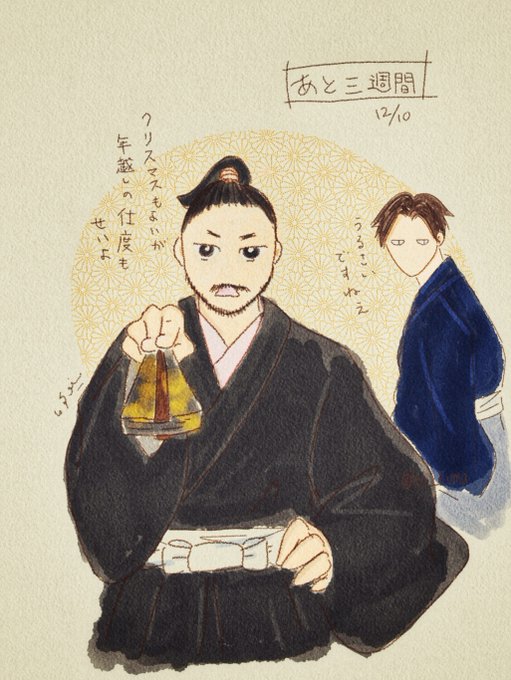 あと三週間
12/10
クリスマスもよいが
年越しの仕度も
せいよ
うるさい
ですねえ